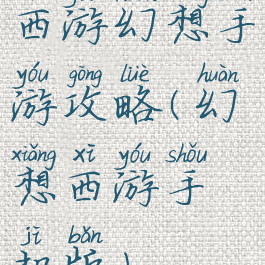 西游幻想手
yóu gōng lüè huàn
游攻略(幻
xiǎng xī yóu shǒu
想西游手
jī bǎn
机版)